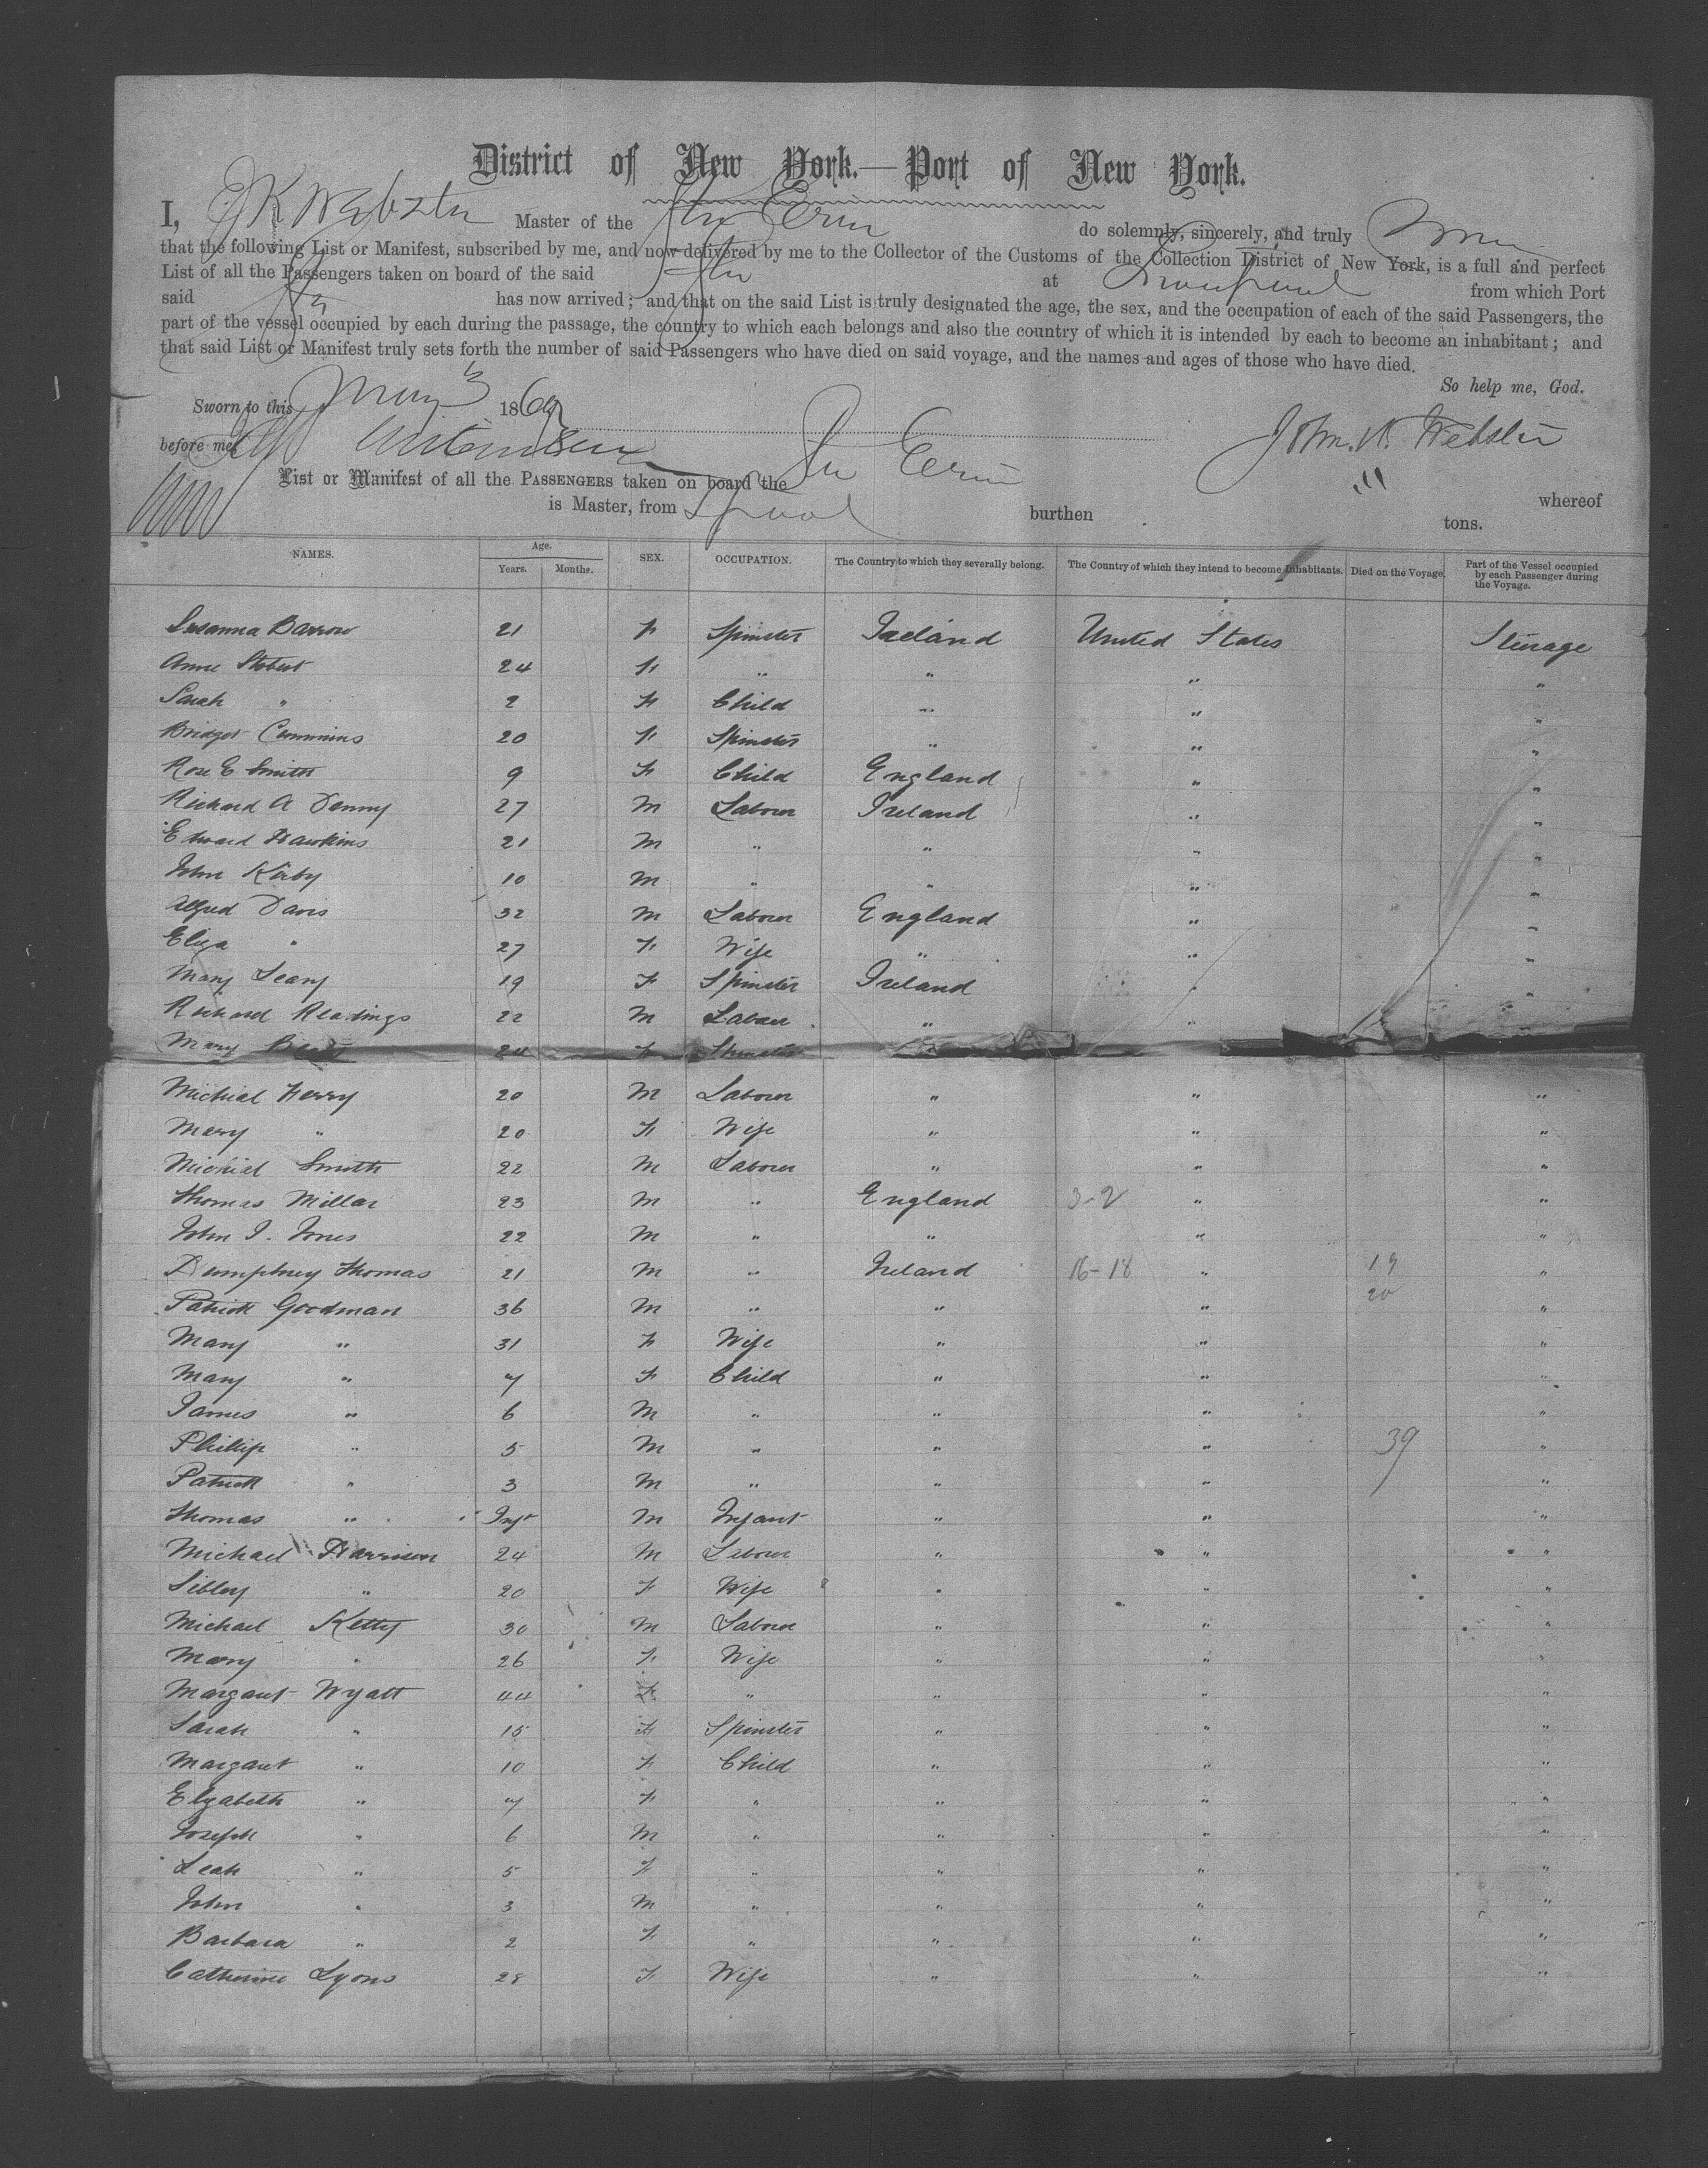 District of New York.—Port of New York.
I, J K Webster Master of the Str Erin do solemnly, sincerely, and truly Swear
that the following List or Manifest, subscribed by me, and now delivered by me to the Collector of the Customs of the Collection District of New York, is a full and perfect
List of all the Passengers taken on board of the said Str at Liverpool from which Port
said Str has now arrived; and that on the said List is truly designated the age, the sex, and the occupation of each of the said Passengers, the
part of the vessel occupied by each during the passage, the country to which each belongs and also the country of which it is intended by each to become an inhabitant; and
that said List or Manifest truly sets forth the number of said Passengers who have died on said voyage, and the names and ages of those who have died.
So help me, God.
Sworn to this May 3 1869
before me John. K. Webster
List or Manifest of all the PASSENGERS taken on board the Str Erin whereof
is Master, from Lpool burthen tons.
NAMES. Age. Years. Months. SEX. OCCUPATION. The Country to which they severally belong. The Country of which they intend to become Inhabitants. Died on the Voyage. Part of the Vessel occupied by each Passenger during the Voyage.
Susanna Barrow 21 F Spinster Ireland United States Steerage
Anne Stobert 24 F " " " "
Sarah " 2 F Child " " "
Bridget Cummins 20 F Spinster " " "
Rose E Smith 9 F Child England " "
Richard A Denny 27 M Labour Ireland " "
Edward Hawkins 21 M " " " "
John Kirby 10 M " " " "
Alfred Davis 32 M Labour England " "
Eliza " 27 F Wife " " "
Mary Leary 19 F Spinster Ireland " "
Richard Readings 22 M Labour " " "
Mary 24 F Spinster
Michial Kerry 20 M Labour " " "
Mary " 20 F Wife " " "
Michiel Smith 22 M Labour " " "
Thomas Millar 23 M " England 3-2 " "
John I. Jones 22 M " " " "
Humphrey Thomas 21 M " Ireland 16-18 " 19 "
Patrick Goodman 36 M " " " 20 "
Mary " 31 F Wife " " "
Mary " 7 F Child " " "
James " 6 M " " " "
Phillip " 5 M " " " 39 "
Patrick " 3 M " " " "
Thomas " Inft M Infant " " "
Michael Harrison 24 M Labour " " "
Sibley " 20 F Wife " " "
Michael Ketty 30 M Labour " " "
Mary " 26 F Wife " " "
Margaret Wyatt 44 F " " " "
Sarah " 15 F Spinster " " "
Margaret " 10 F Child " " "
Elizabeth " 7 F " " " "
Joseph " 6 M " " " "
Leah " 5 F " " " "
John " 3 M " " " "
Barbara " 2 F " " " "
Catherine Lyons 28 F Wife " " "